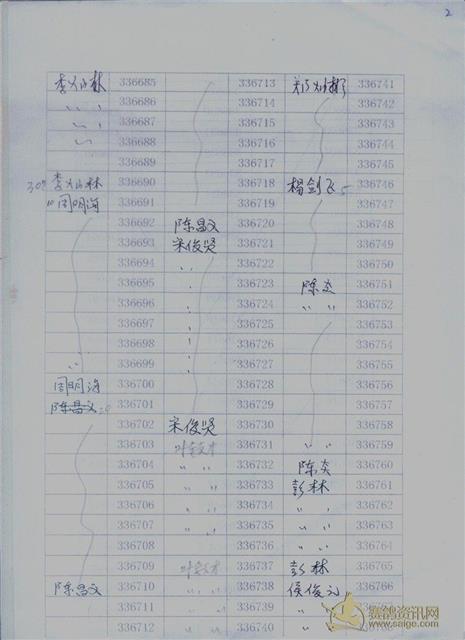 2
李 林 336685 336713 336741
〃 〃 336686 336714 336742
〃 〃 336687 336715 336743
〃 336688 336716 336744
336689 336717 336745
李 林 336690 336718 杨剑飞 336746
周明海 336691 336719 336747
336692 陈昌文 336720 336748
336693 宋俊贤 336721 336749
336694 〃 336722 336750
336695 336723 陈炎 336751
336696 336724 〃 〃 336752
336697 336725 336753
336698 336726 336754
〃 336699 336727 336755
周明海 336700 336728 336756
陈昌文 336701 336729 336757
336702 宋俊贤 336730 336758
336703 336731 〃 〃 336759
336704 〃 〃 336732 陈炎 336760
336705 〃 〃 336733 彭林 336761
336706 〃 〃 336734 〃 〃 336762
336707 〃 〃 336735 〃 〃 336763
336708 336736 〃 〃 336764
336709 336737 彭林 336765
陈昌文 336710 〃 〃 336738 侯俊元 336766
336711 〃 〃 336739 〃
336712 〃 〃 336740 〃
赛鸽资讯网
www.saige.com